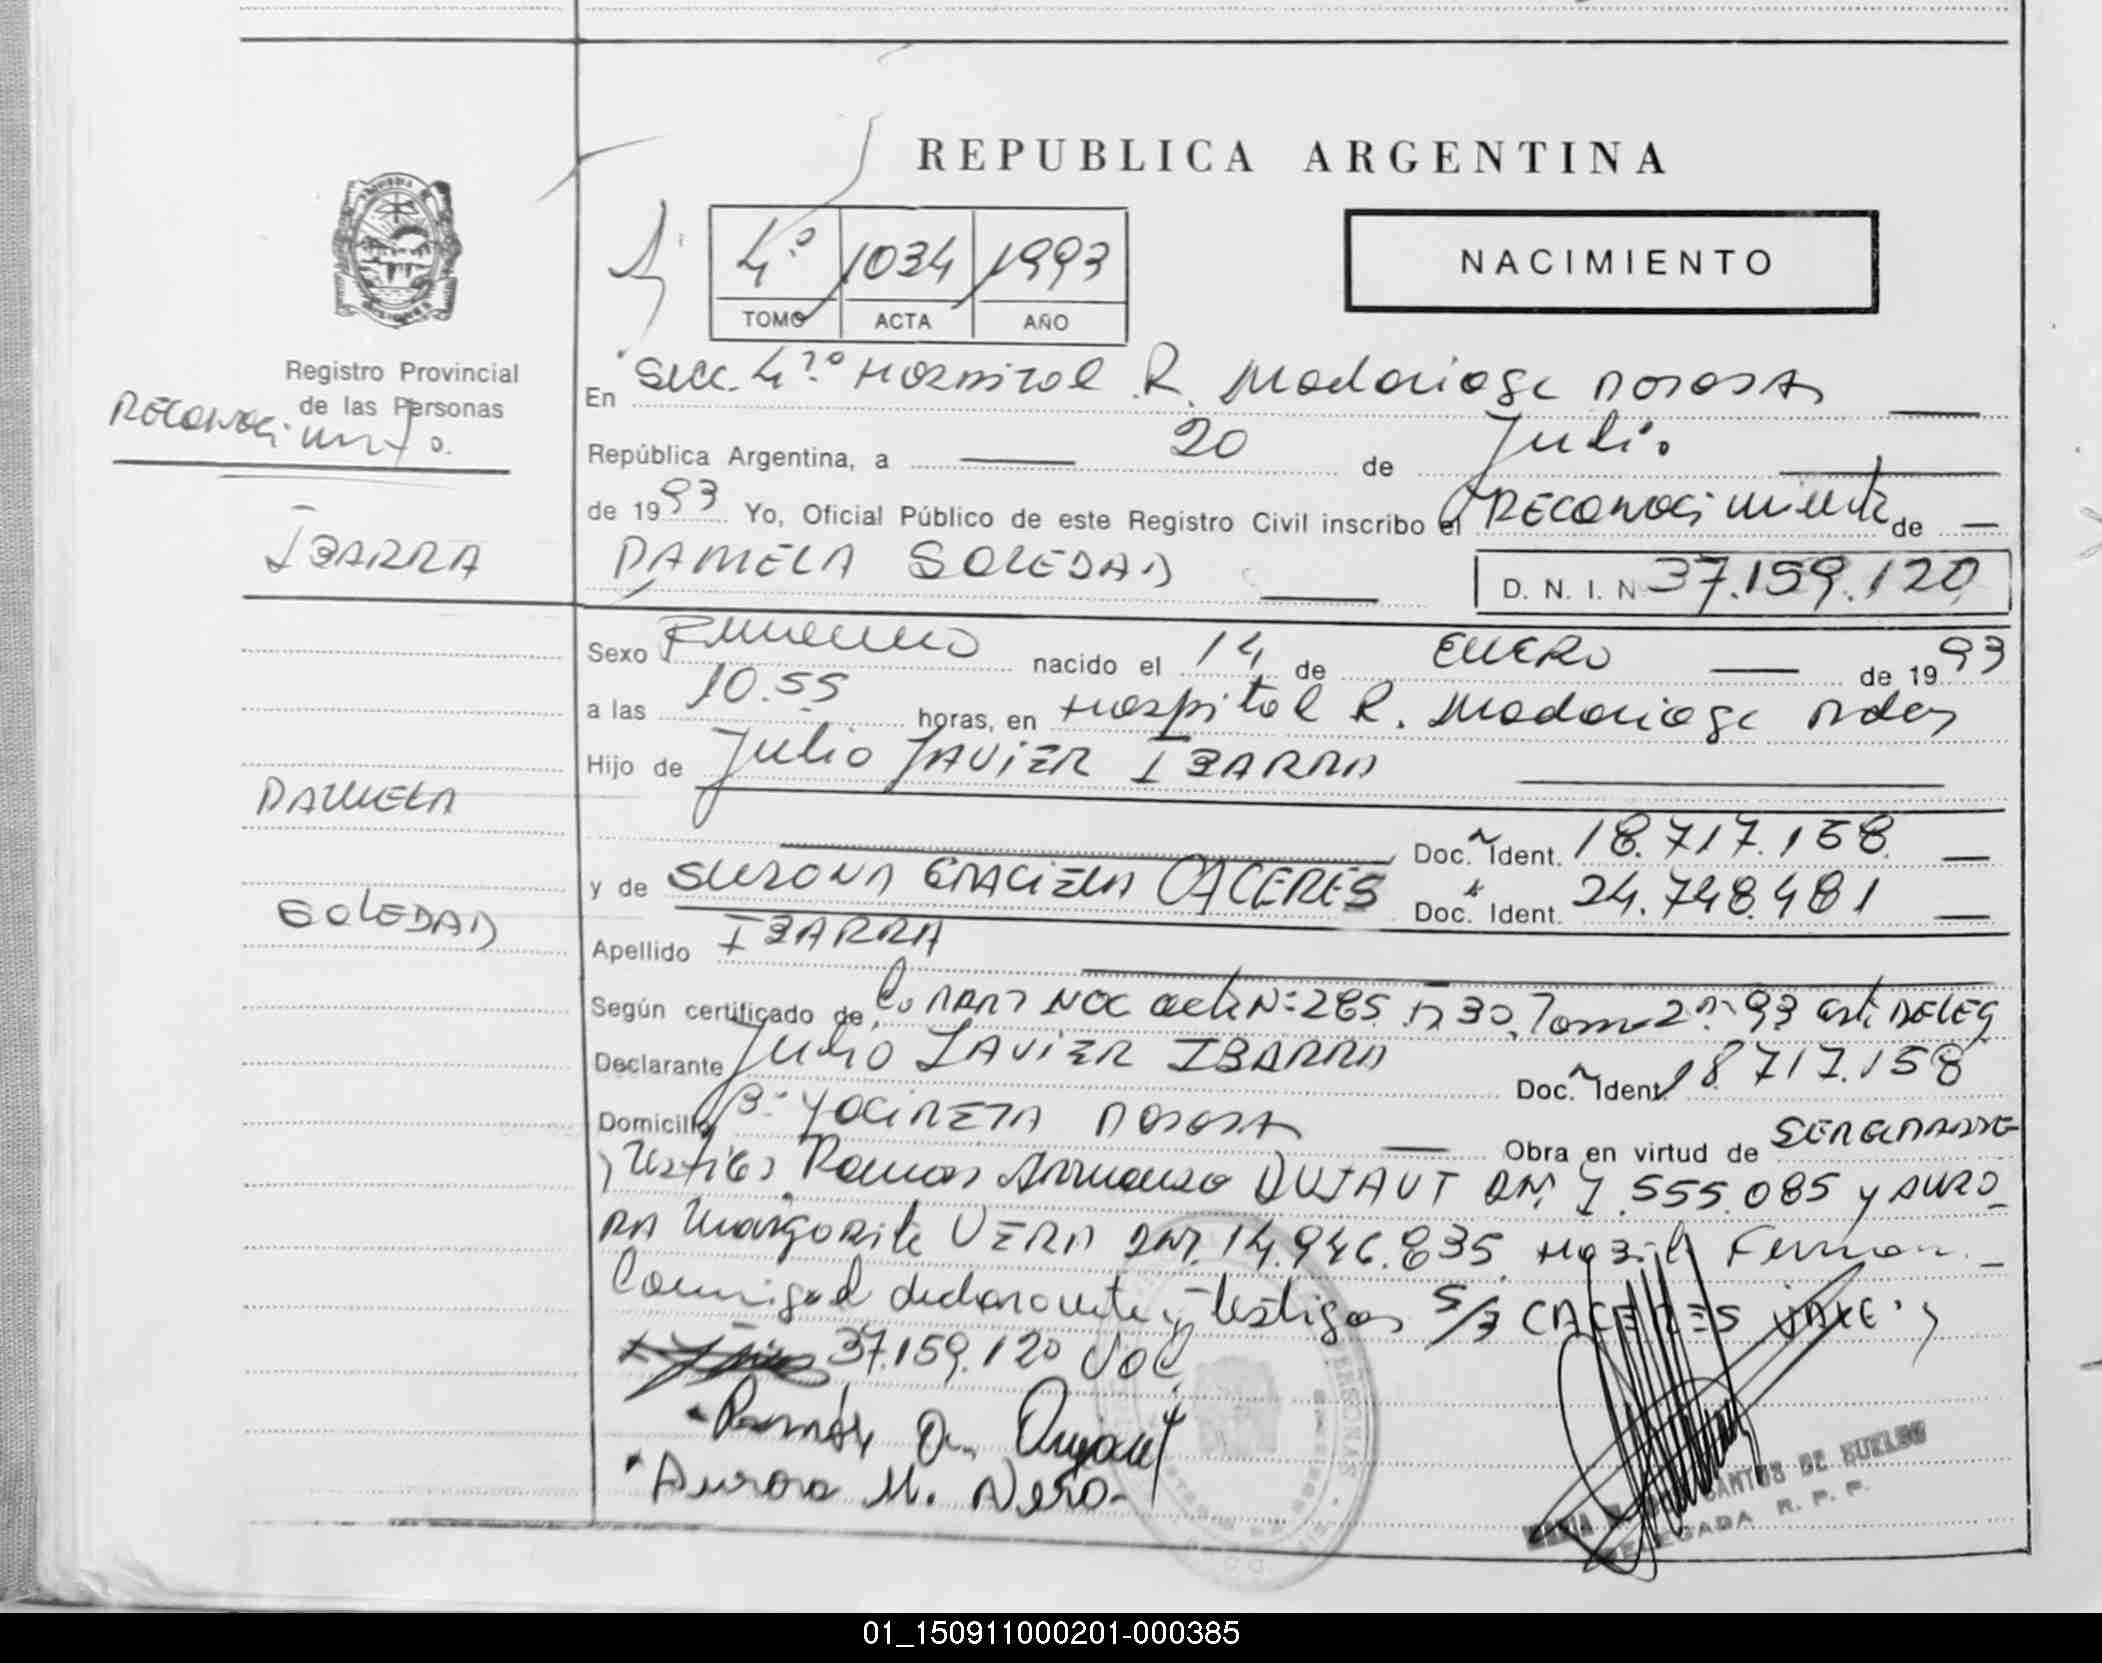 REPUBLICA ARGENTINA
NACIMIENTO
4º 1034 1993
TOMO ACTA AÑO
Registro Provincial
de las Personas
Reconocimiento.
IBARRA
PAMELA
SOLEDAD
En Secc. 4º Hospital R. Madariaga Posadas
República Argentina, a 20 de Julio
de 1993 Yo, Oficial Público de este Registro Civil inscribo el Reconocimiento de
PAMELA SOLEDAD D. N. I. N 37.159.120
Sexo Femenino nacido el 14 de ENERO de 1993
a las 10.55 horas, en Hospital R. Madariaga Pdas
Hijo de Julio JAVIER IBARRA
Doc. Ident. 18.717.158
y de SUSANA GRACIELA CACERES Doc. Ident. 24.748.481
Apellido IBARRA
Según certificado de NAC acta Nº 285 Tomo 2º 93 esta DELEG
Declarante Julio JAVIER IBARRA Doc. Ident. 18.717.158
Domicilio Bº YACIRETA POSADAS Obra en virtud de SER EL PADRE
y testigos Ramon Armando DUJAUT DNI 7.555.085 y AURO
RA Margarita VERA DNI. 14.946.835. Firman
Conmigo el declarante y testigos S/R CACERES VALE
37.159.120
Ramón A. Dujaut
Aurora M. Vera
SANTOS DE
DELEGADA R. P. P.
01_150911000201-000385